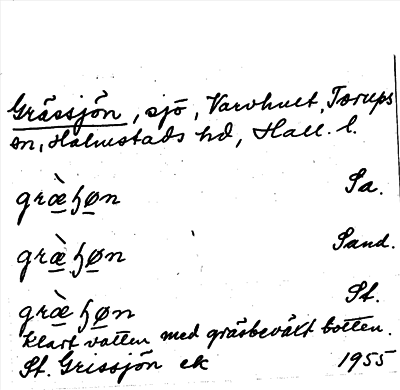 Grässjön, sjö, Varvhult, Torups
sn, Halmstads hd, Hall. l.
græ̀ɧøn Sa.
græ̀ɧøn Sand.
græ̀ɧøn St.
Klart vatten med gräsbeväxt botten.
St. Grissjön ek 1955